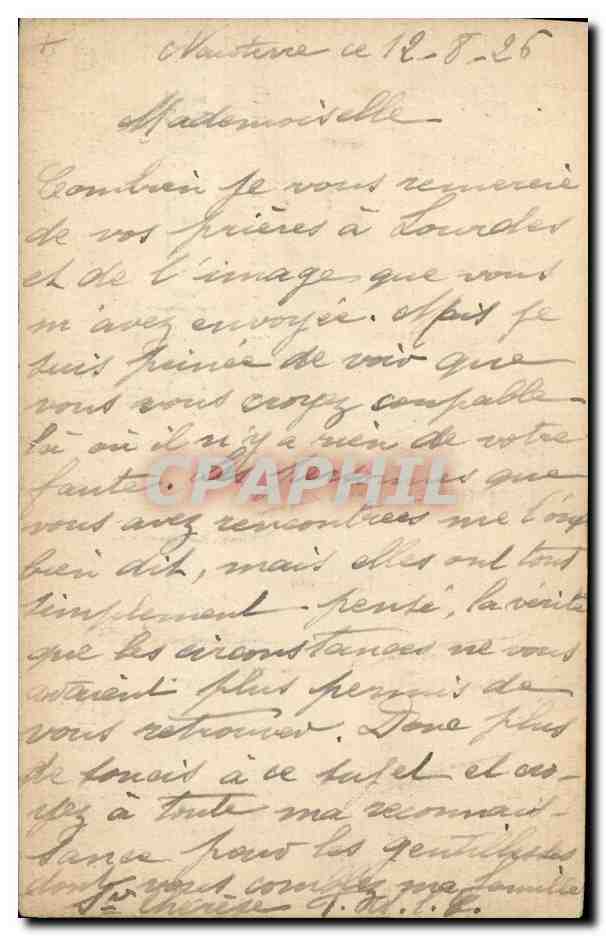 Nanterre ce 12-8-26
Mademoiselle
Combien je vous remercie
de vos prières à Lourdes
et de l'image que vous
m'avez envoyée. Mais je
suis peinée de voir que
vous vous croyez coupable
là où il n'y a rien de votre
faute. Les personnes que
CPAPHIL
vous avez rencontrées me l'ont
bien dit, mais elles ont tout
simplement pensé, la vérité
que les circonstances ne vous
avaient plus permis de
vous retrouver. Donc plus
de soucis à ce sujet et cro-
yez à toute ma reconnais-
sance pour les gentillesses
dont vous comblez ma famille
Sr Thérèse